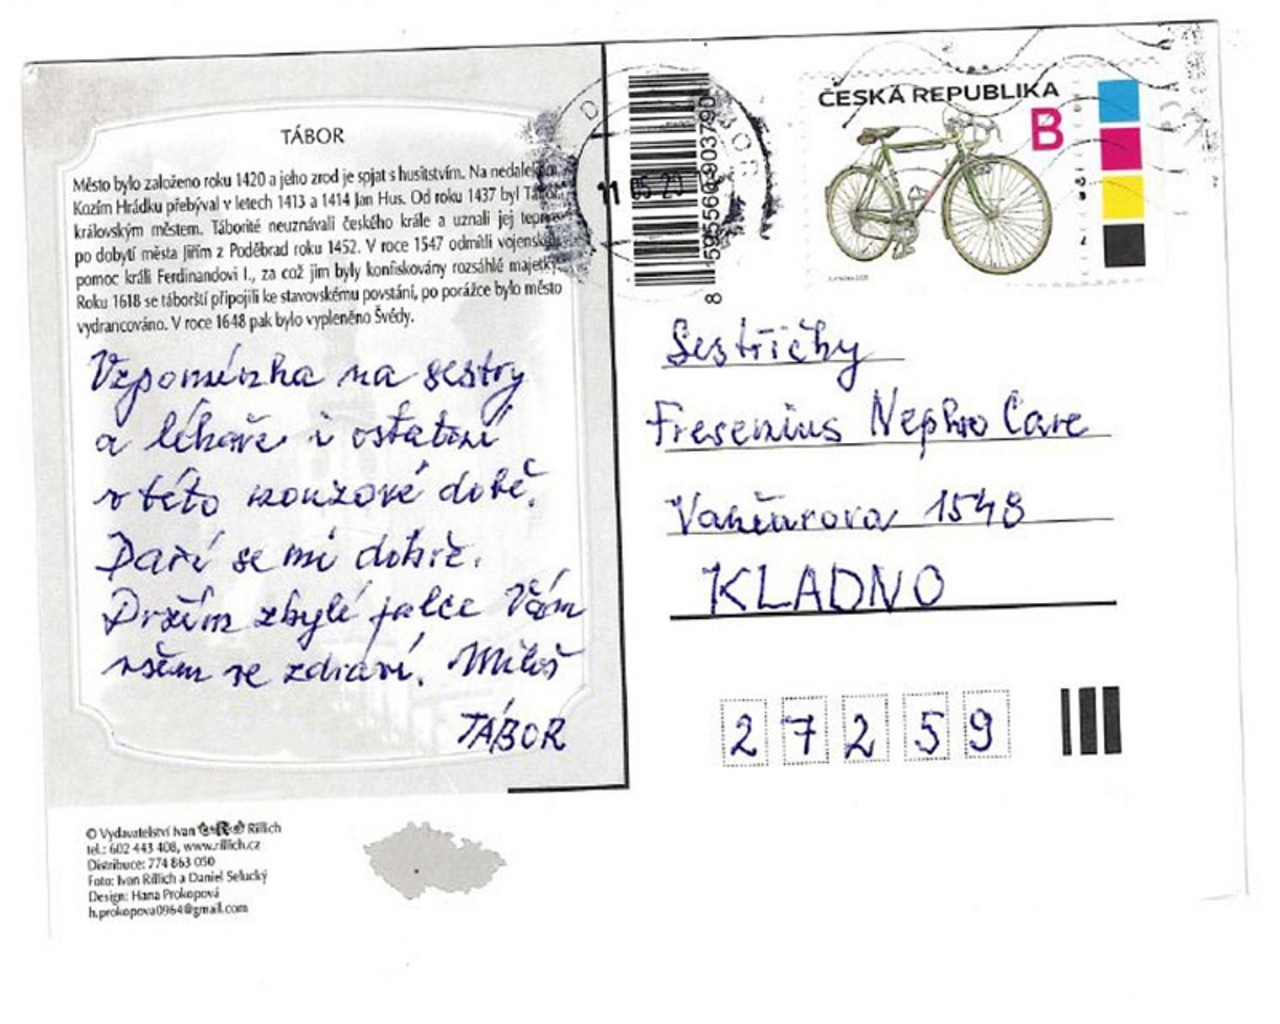 TÁBOR
Město bylo založeno roku 1420 a jeho zrod je spjat s husitstvím. Na
Kozím Hrádku přebýval v letech 1413 a 1414 Jan Hus. Od roku 1437 byl Tábor
královským městem. Táborité neuznávali českého krále a uznali jej teprve
po dobytí města Jiřím z Poděbrad roku 1452. V roce 1547 odmítli vojenskou
pomoc králi Ferdinandovi I., za což jim byly konfiskovány rozsáhlé majetky.
Roku 1618 se táborští připojili ke stavovskému povstání, po porážce bylo město
vydrancováno. V roce 1648 pak bylo vypleněno Švédy.
Vzpomínka na sestry
a lékaře i ostatní
v této nouzové době.
Daří se mi dobře.
Držím zbylé palce Vám
všem ve zdraví. Miloš
TÁBOR
© Vydavatelství Ivan Rillich
tel.: 602 443 408, www.rillich.cz
Distribuce: 774 863 050
Foto: Ivan Rillich a Daniel Selucký
Design: Hana Prokopová
h.prokopova0964@gmail.com
11 05 20
8 595560 903790
ČESKÁ REPUBLIKA
B
Sestřičky
Fresenius Nephro Care
Vančurova 1548
KLADNO
27259